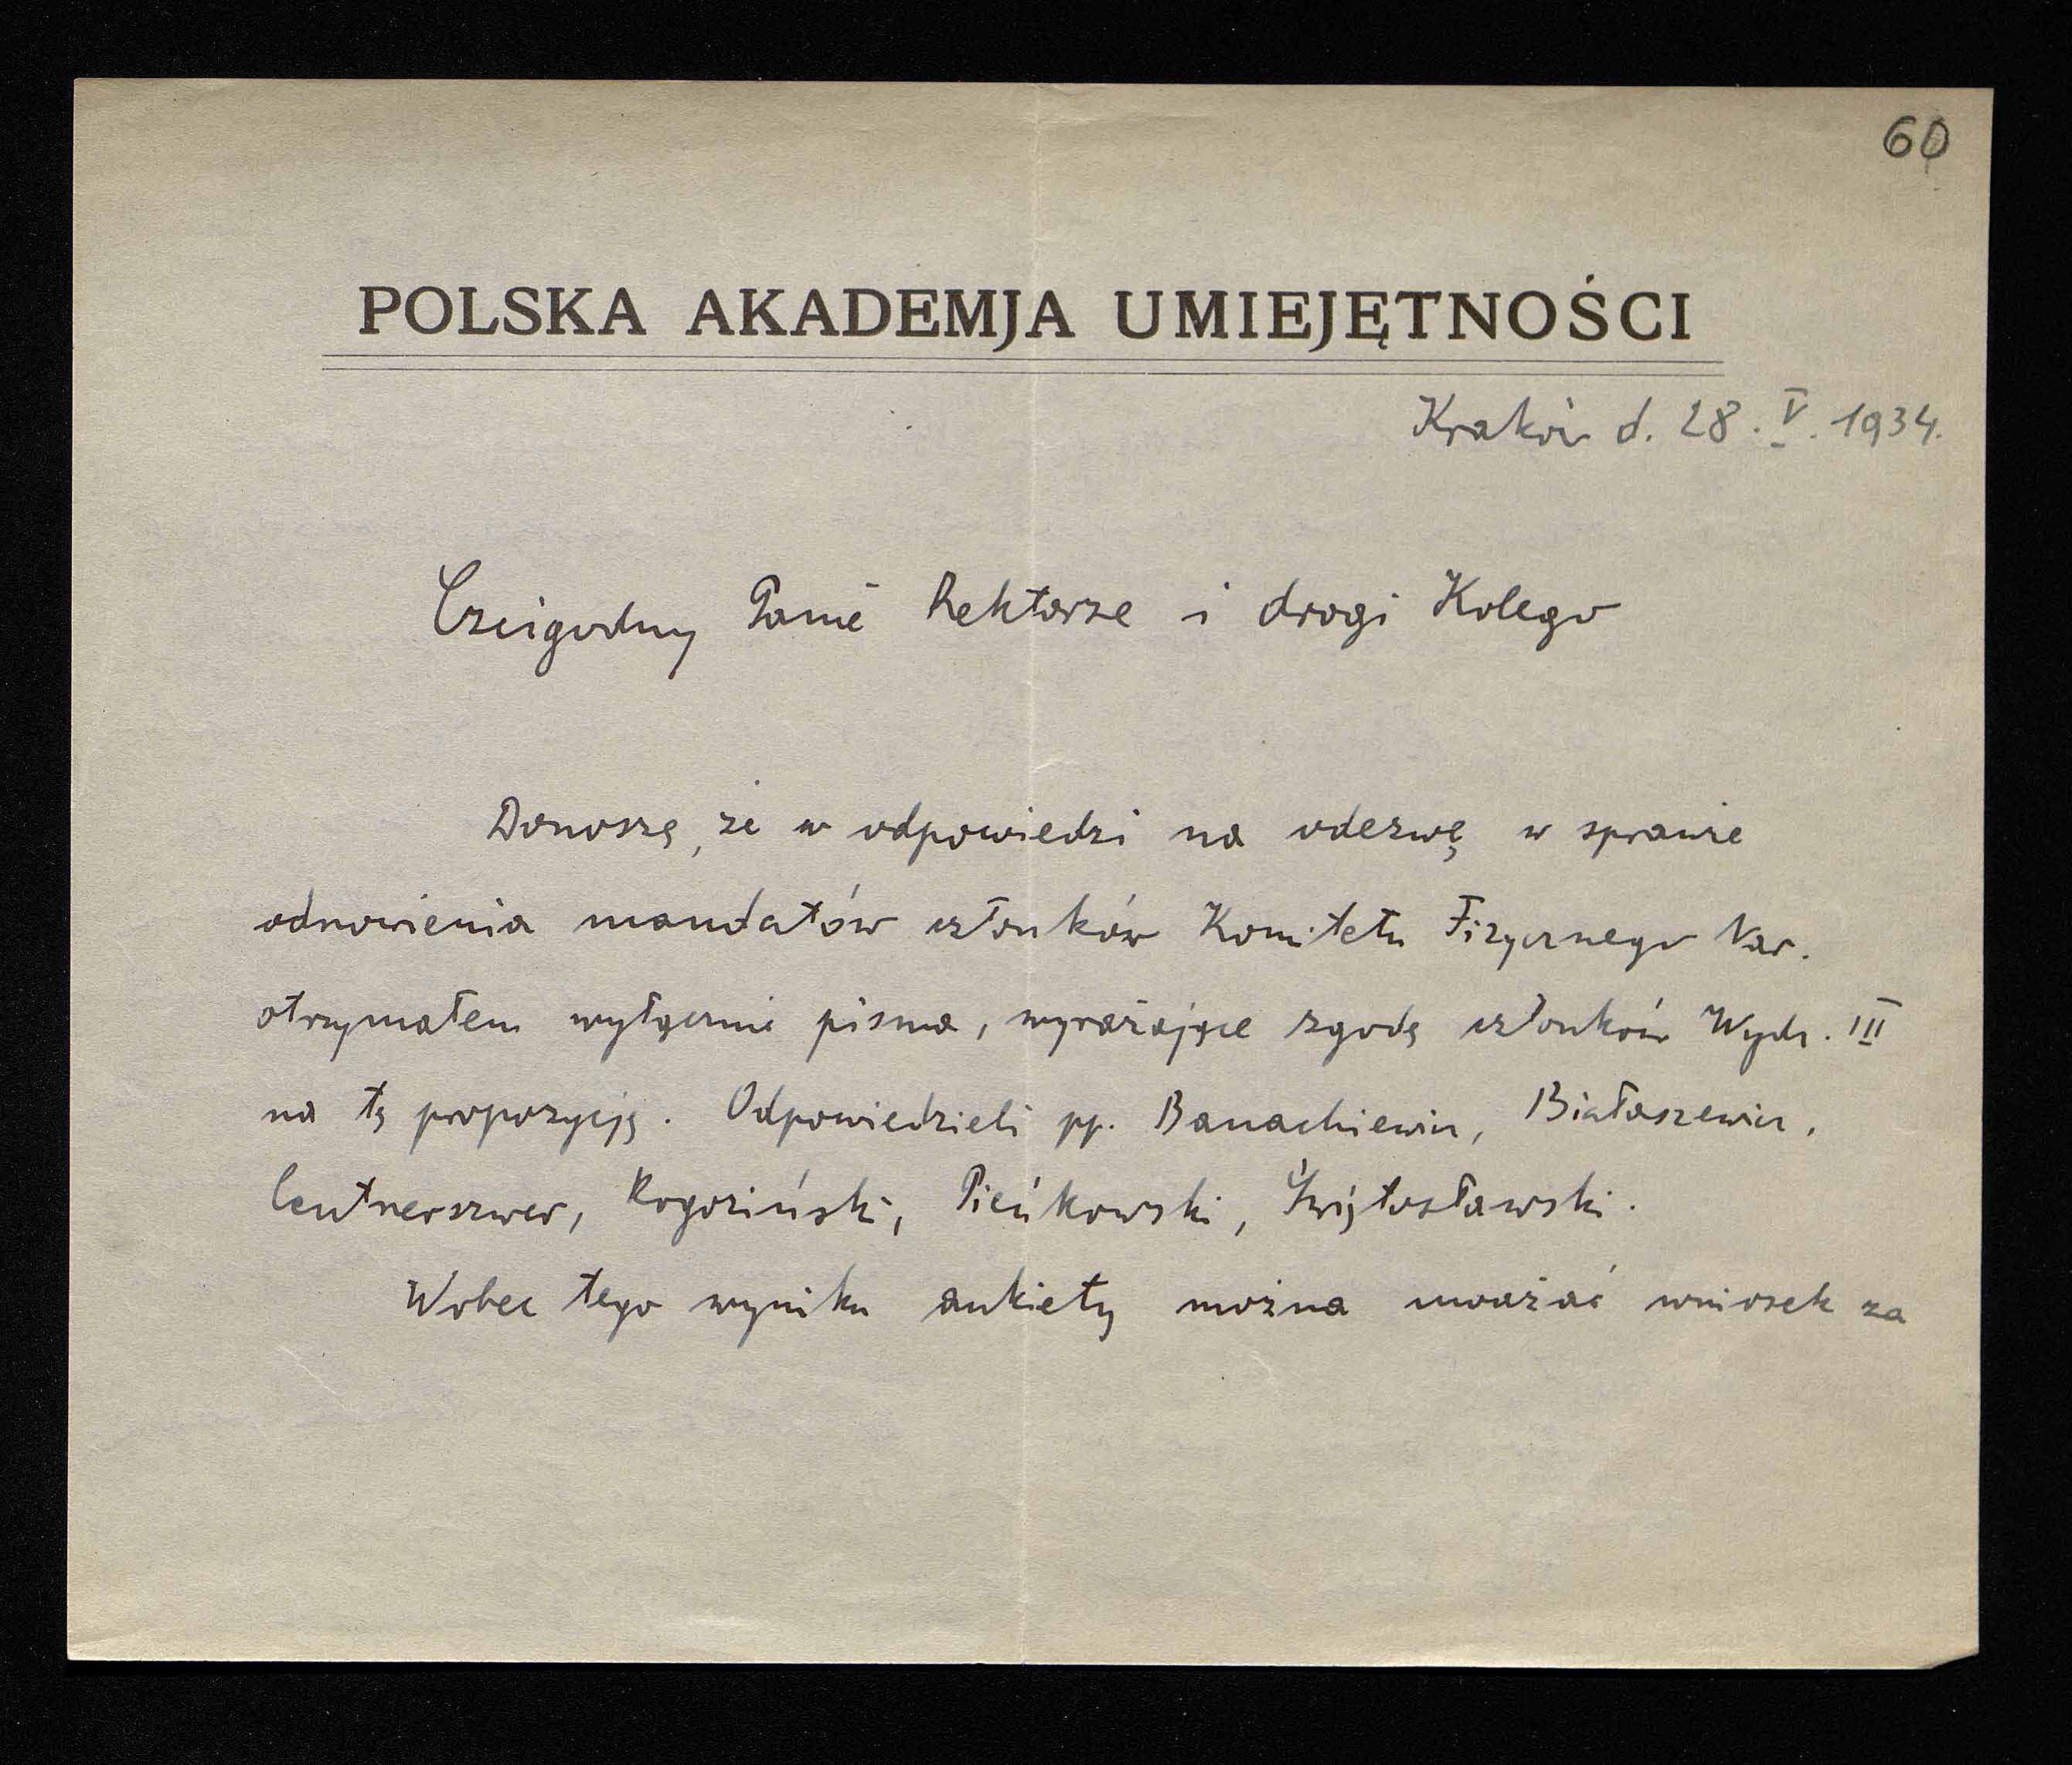 60
POLSKA AKADEMJA UMIEJĘTNOŚCI
Kraków d. 28. V. 1934.
Czcigodny Panie Rektorze i drogi Kolego
Donoszę, że w odpowiedzi na odezwę w sprawie
odnowienia mandatów członków Komitetu Fizycznego Nar.
otrzymałem wyłącznie pisma, wyrażające zgodę członków Wydz. III
na tę propozycję. Odpowiedzieli pp. Banachiewicz, Białaszewicz,
Centnerszwer, Rogoziński, Pieńkowski, Świętosławski.
Wobec tego wyniku ankiety można uważać wniosek za